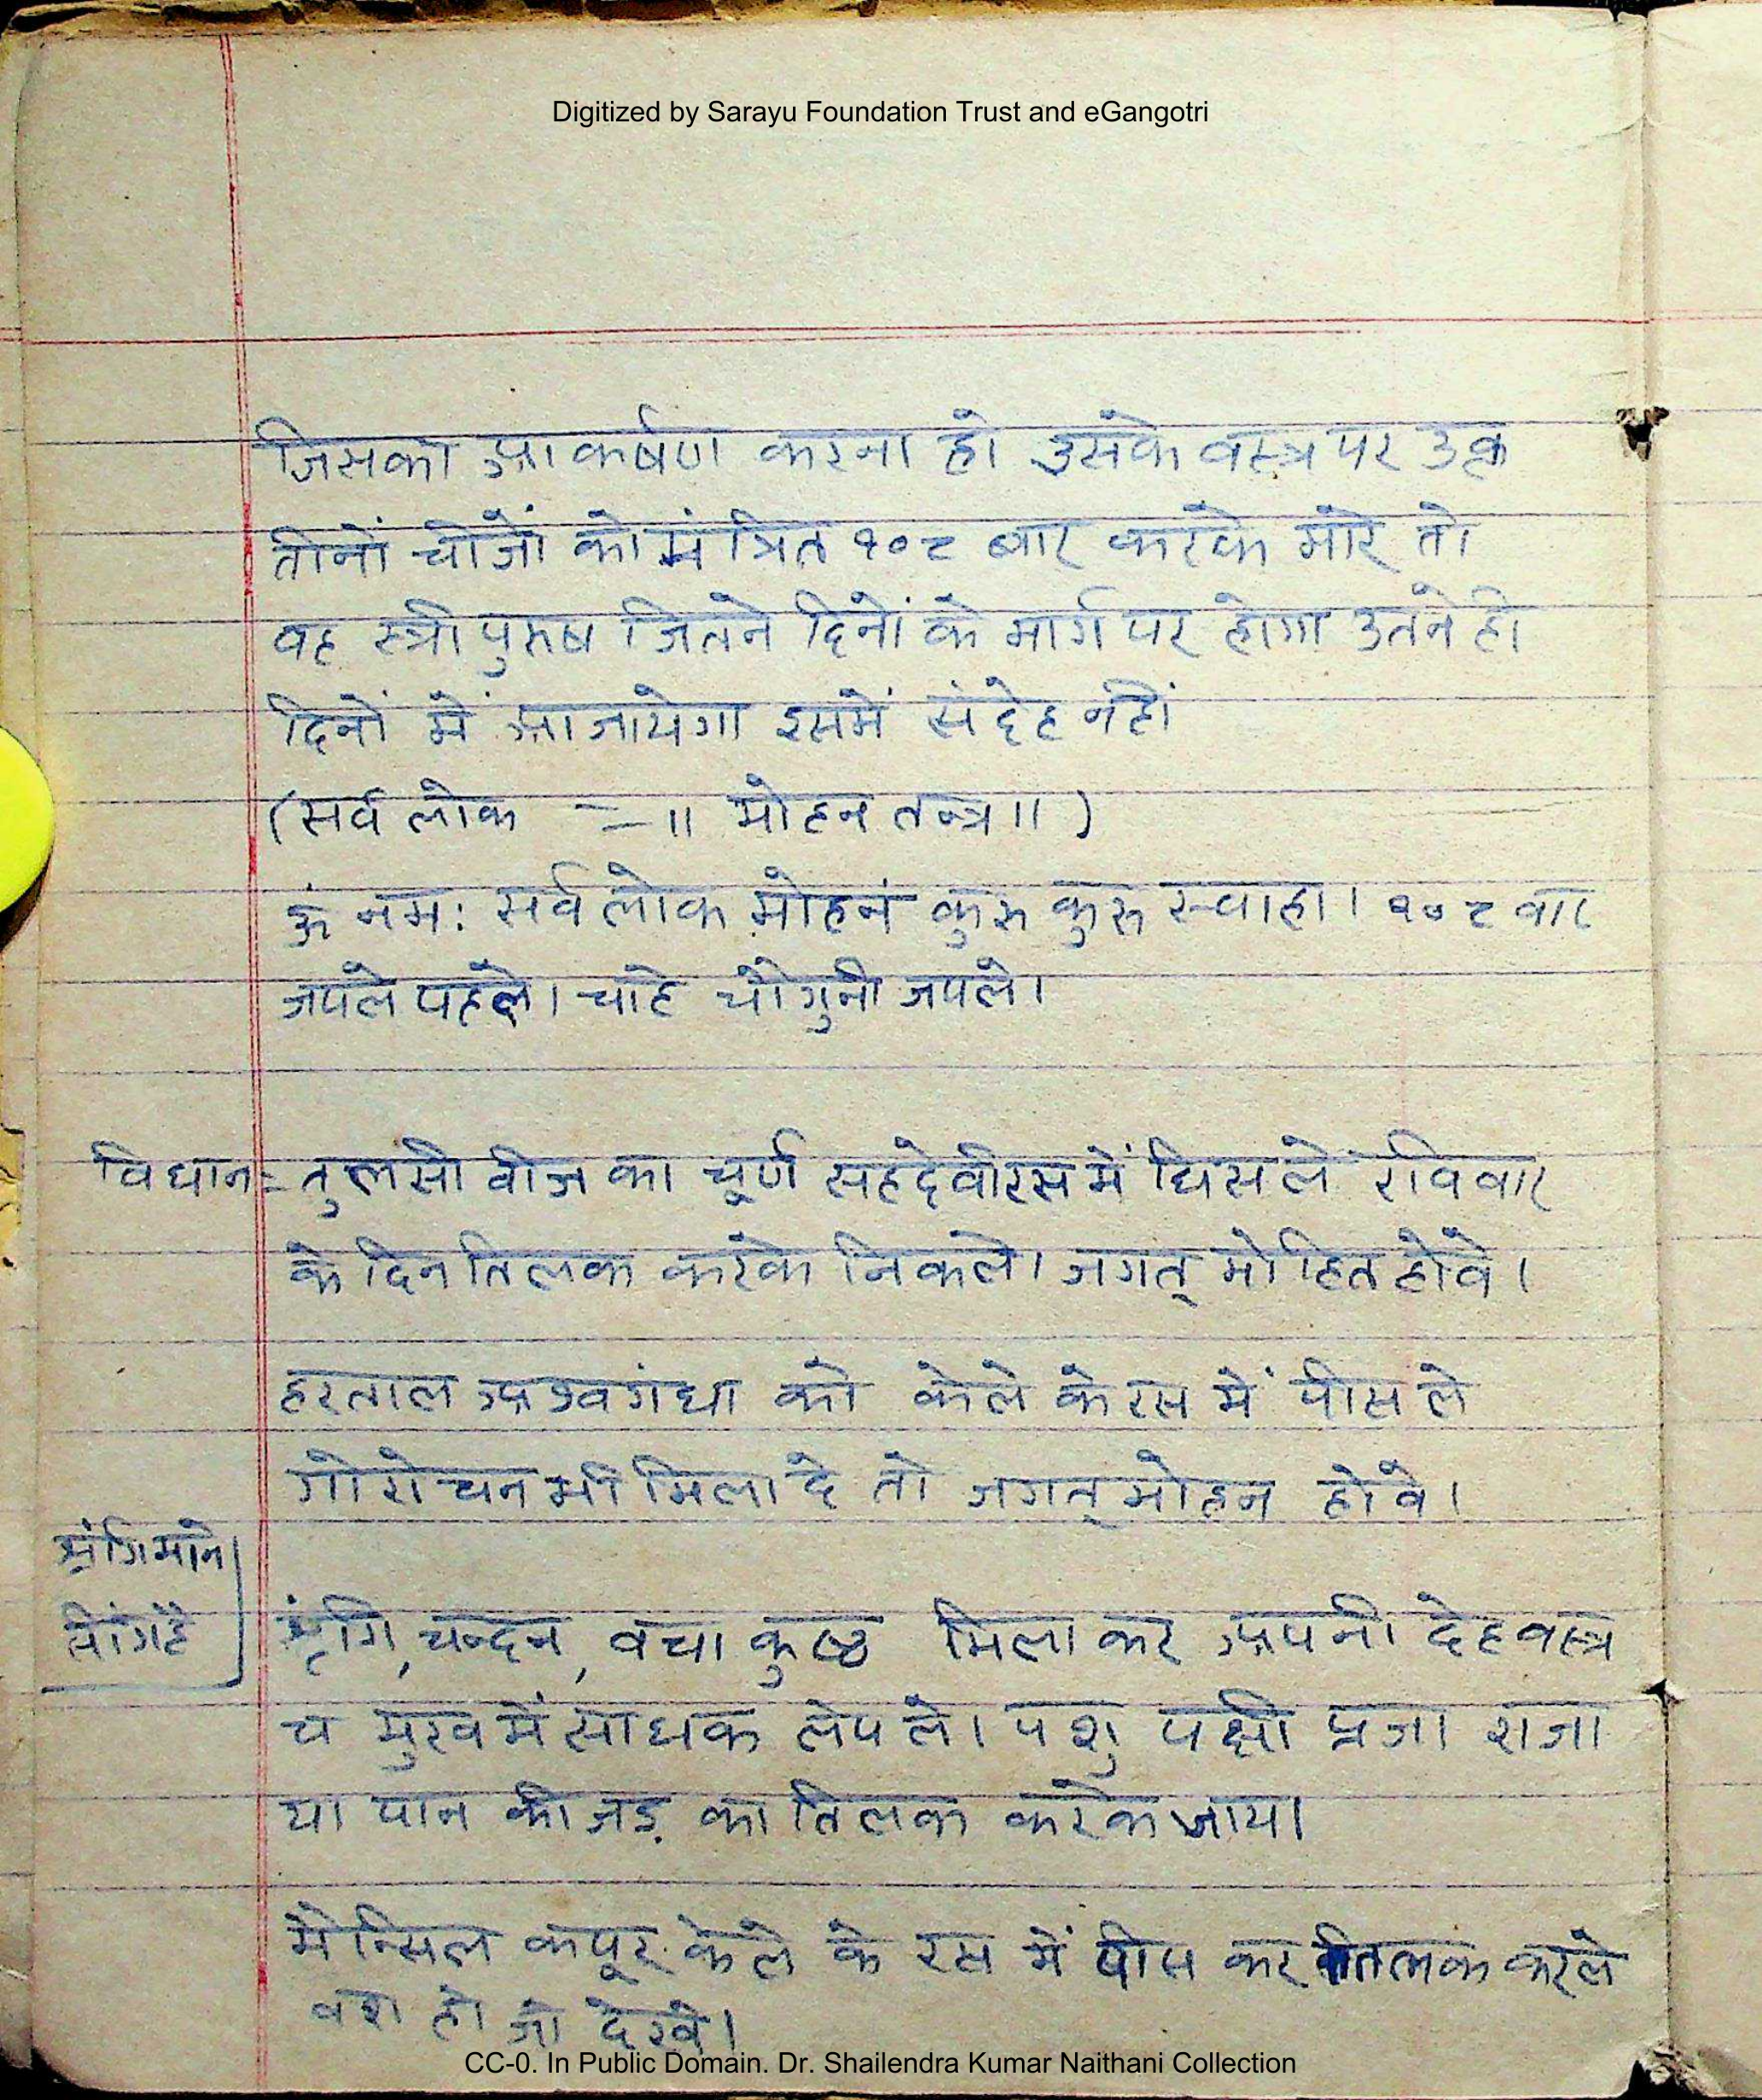 Digitized by Sarayu Foundation Trust and eGangotri
जिसको आकर्षण करना हो उसके वस्त्र पर उक्त
तीनों चीजों को मंत्रित १०८ बार करके मारे तो
वह स्त्री पुरुष जितने दिनों के मार्ग पर होगा उतने ही
दिनों में आजायेगा इसमें संदेह नंही
(सर्व लोक = ॥ मोहन तन्त्र ॥ )
ॐ नमः सर्व लोक मोहनं कुरु कुरु स्वाहा। १०८ वार
जपले पहले। चाहे चौगुनी जपले।
विधान = तुलसी वीज का चूर्ण सहदेवीरस में घिसले रविवार
के दिन तिलक करके निकले। जगत् मोहित होवे।
हरताल अश्वगंधा को केले के रस में पीस ले
गोरोचन भी मिला दे तो जगत् मोहन होवे।
श्रृंगि माने
सींग है
श्रृंगि, चन्दन, वचा कुष्ठ मिला कर अपनी देह वस्त्र
च मुख में साधक लेप ले। पशु पक्षी प्रजा राजा
या पान की जड़ का तिलक करके जाय।
मैन्सिल कपूर केले के रस में पीस कर तिलक करले
वश हो जो देखे।
CC-0. In Public Domain. Dr. Shailendra Kumar Naithani Collection